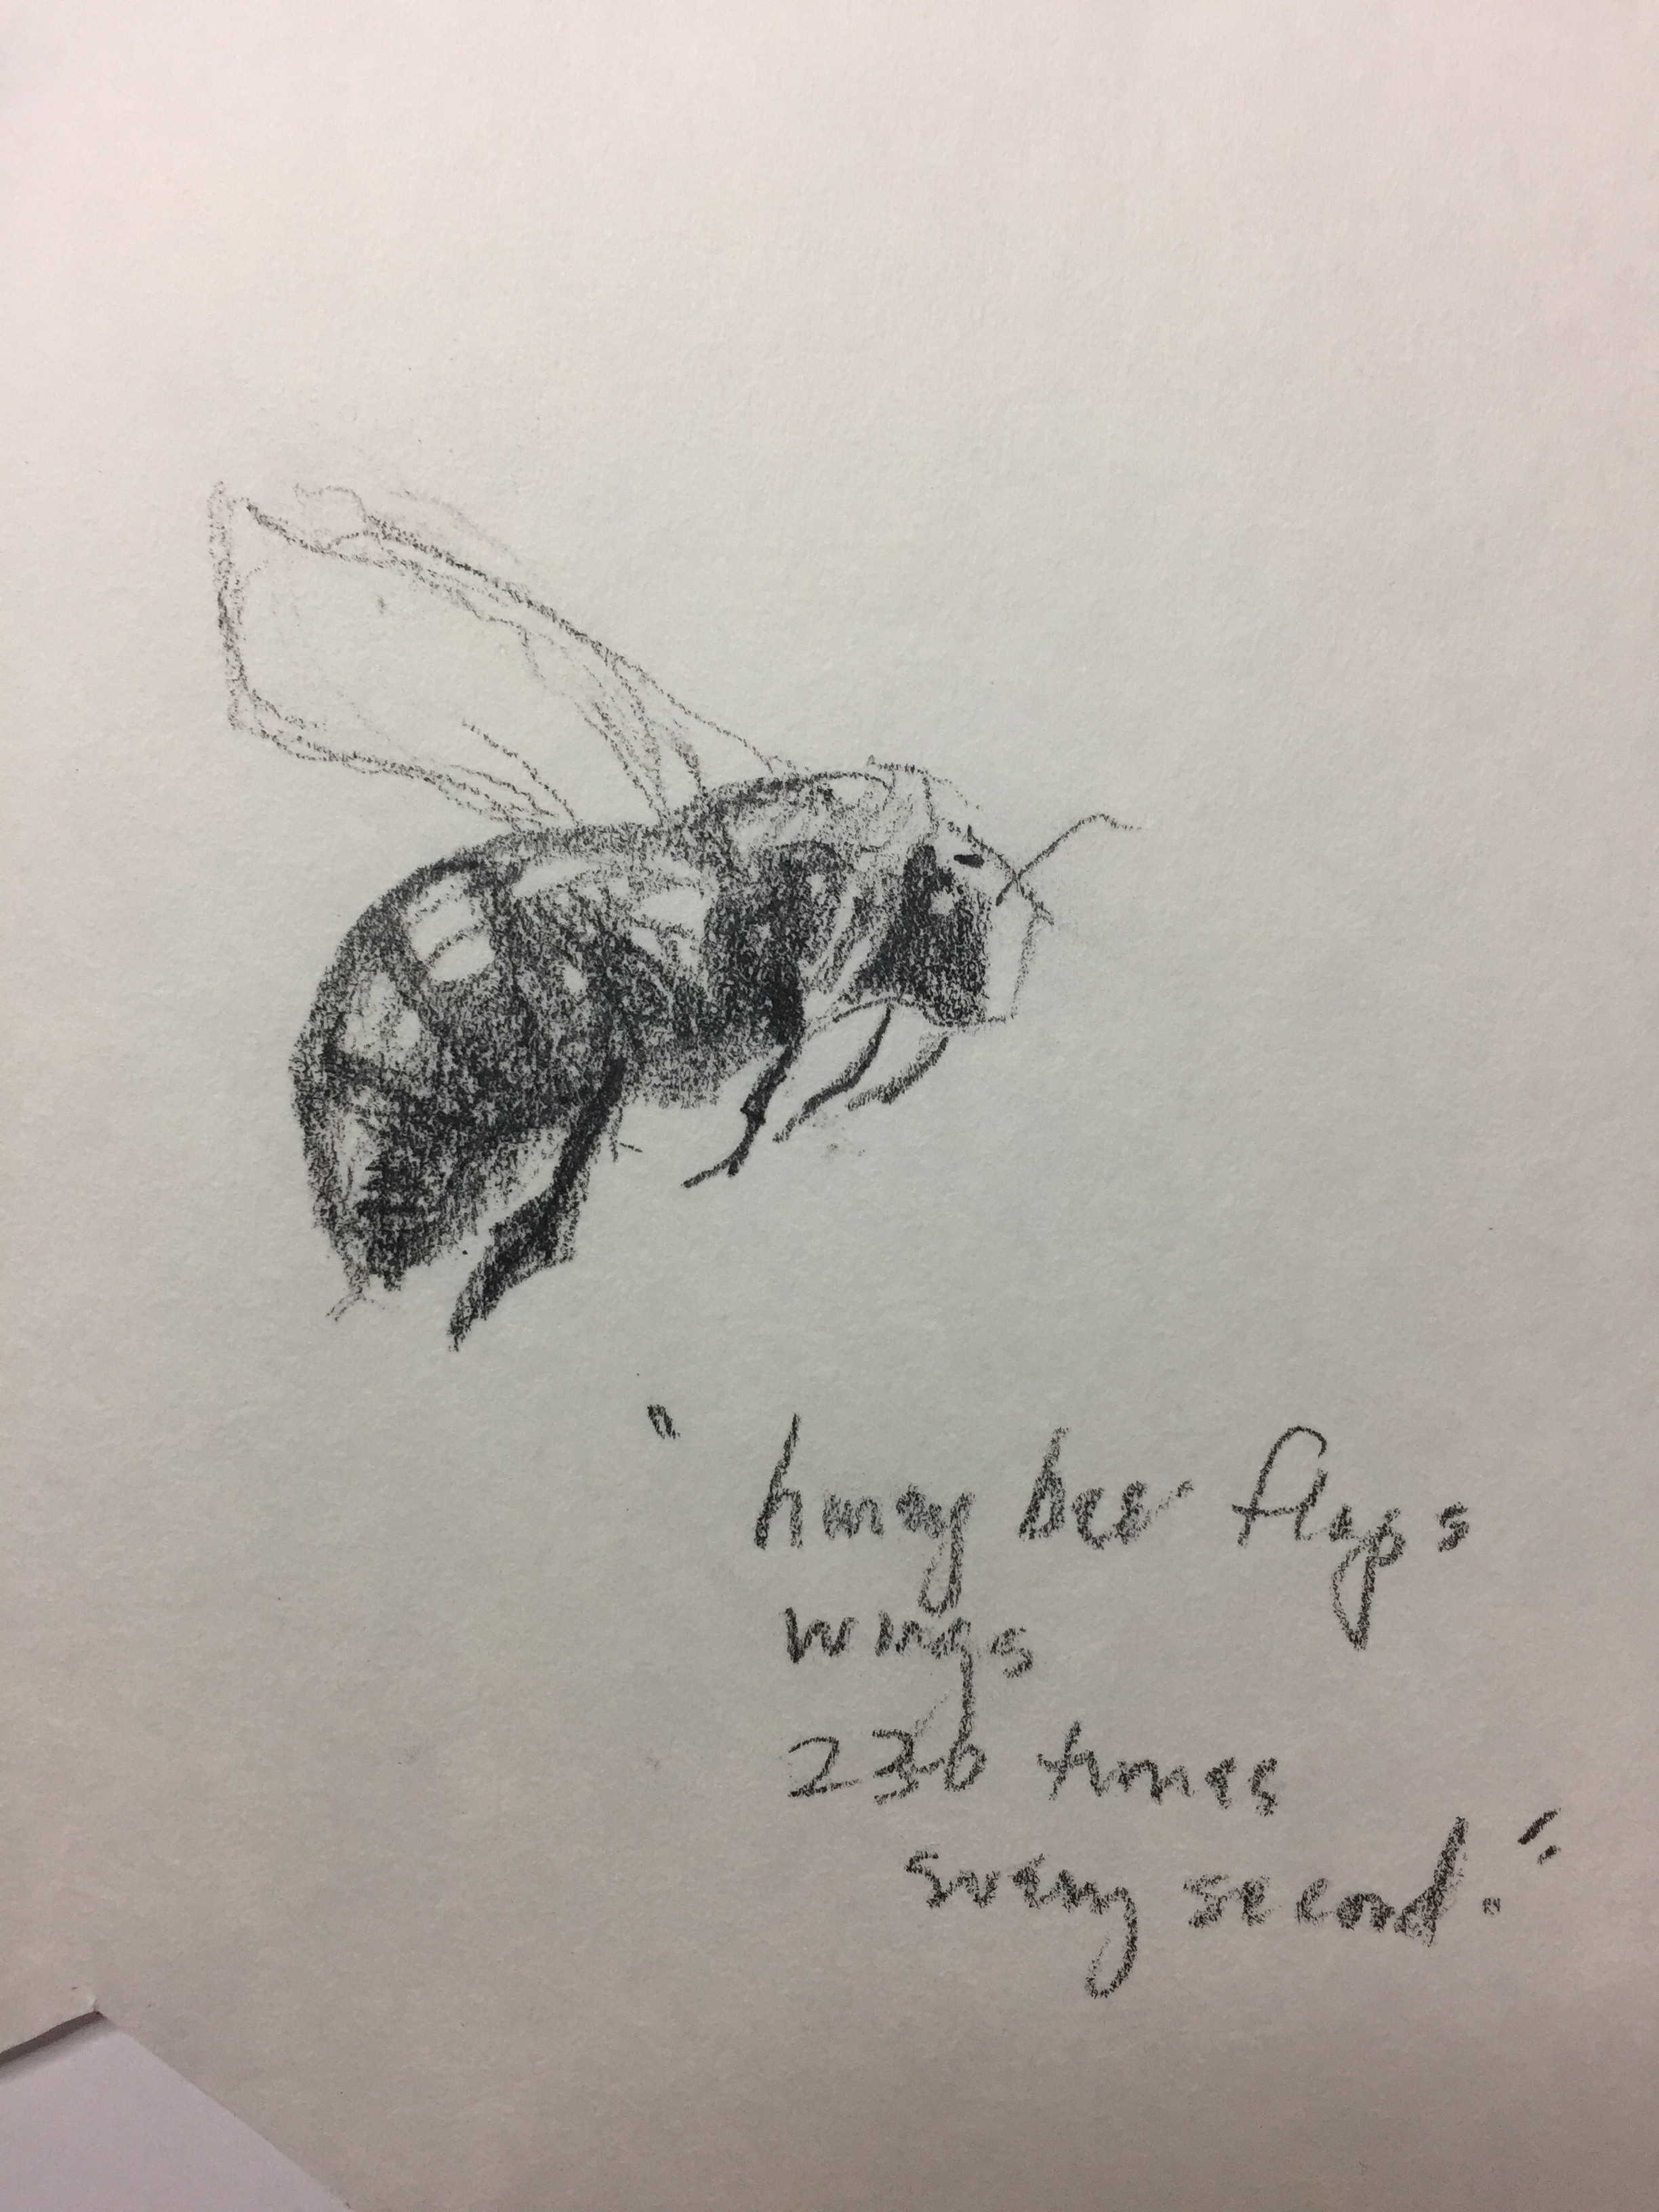 " honey bee flaps
wings
230 times
every second."